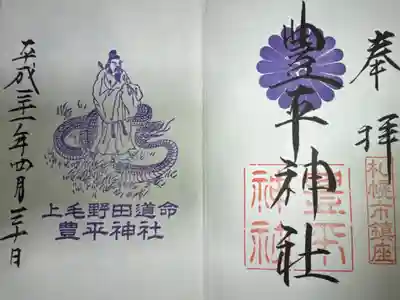 奉拝
札幌市鎮座
豊平神社
豊平
神社
上毛野田道命
豊平神社
平成三十一年四月三十日